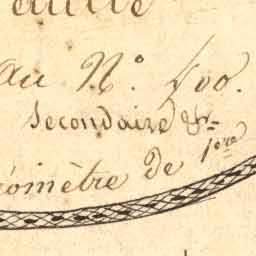 au N.° 400.
Secondaire &r.
omètre de 1ere